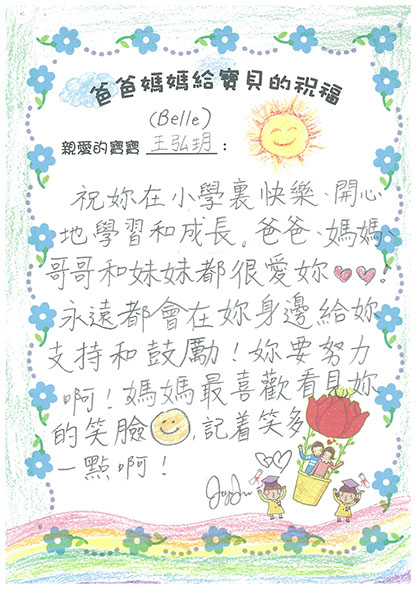 爸爸媽媽給寶貝的祝福
(Belle)
親愛的寶寶 王弘玥：
祝妳在小學裏快樂、開心
地學習和成長。爸爸、媽媽、
哥哥和妹妹都很愛妳！
永遠都會在妳身邊給妳
支持和鼓勵！妳要努力
啊！媽媽最喜歡看見妳
的笑臉，記着笑多
一點啊！